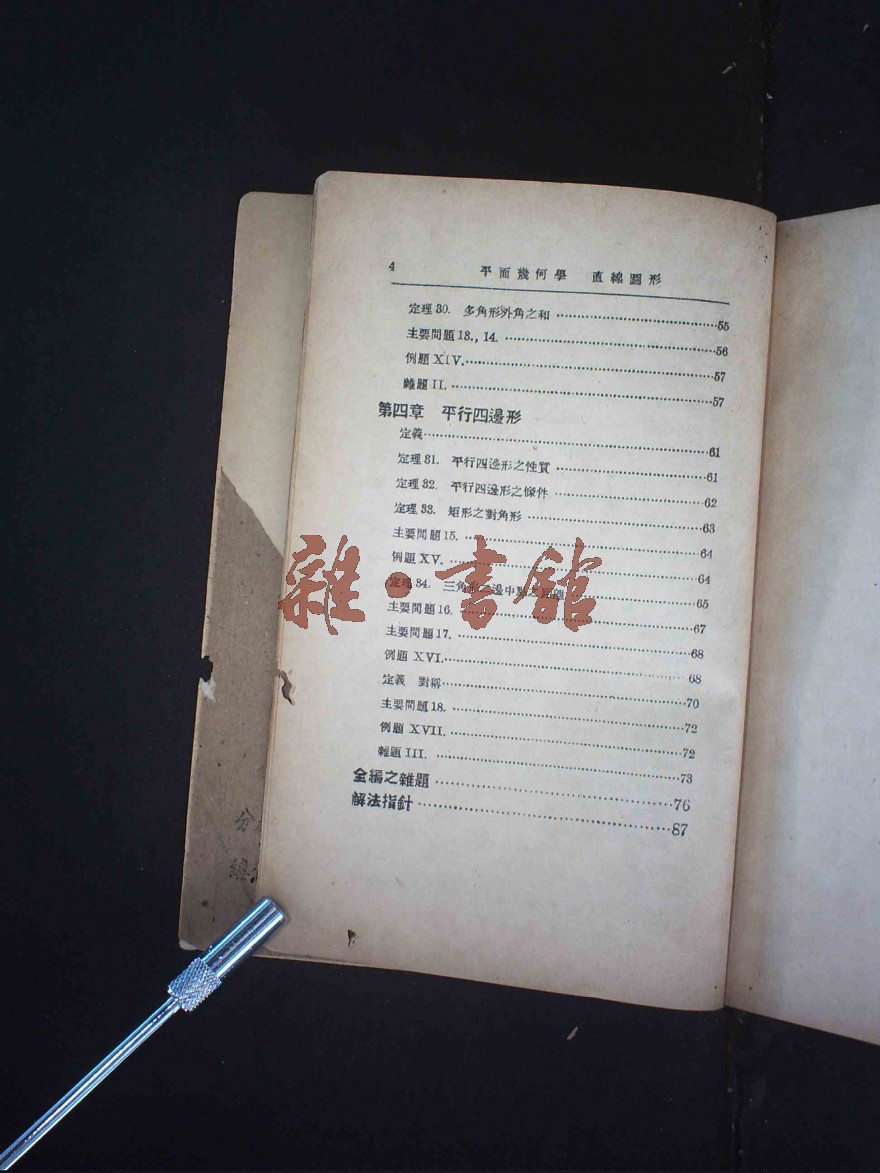 4 平面幾何學 直線圖形
定理30. 多角形外角之和 55
主要問題13., 14. 56
例題XIV. 57
雜題II. 57
第四章 平行四邊形
定義 61
定理31. 平行四邊形之性質 61
定理32. 平行四邊形之條件 62
定理33. 矩形之對角形 63
主要問題15. 64
例題XV. 64
定理34. 三角形二邊中點之距離 65
主要問題16. 67
主要問題17. 68
例題XVI. 68
定義 對稱 70
主要問題18. 72
例題XVII. 72
雜題III. 73
全編之雜題 76
解法指針 87
雜·書館